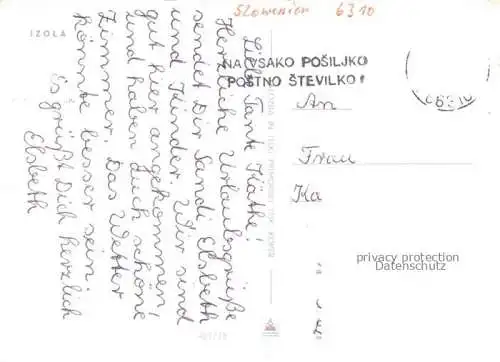 Slowenien 6310
IZOLA
NA VSAKO POŠILJKO
POŠTNO ŠTEVILKO!
Liebe Tante Käthe!
Herzliche Urlaubsgrüße
sendet Dir Sandi Elsbeth
und Kinder. Wir sind
gut hier angekommen,
und haben auch schöne
Zimmer. Das Wetter
könnte besser sein.
Es grüßt Dich herzlich
Elsbeth
An
Frau
Ka
privacy protection
Datenschutz